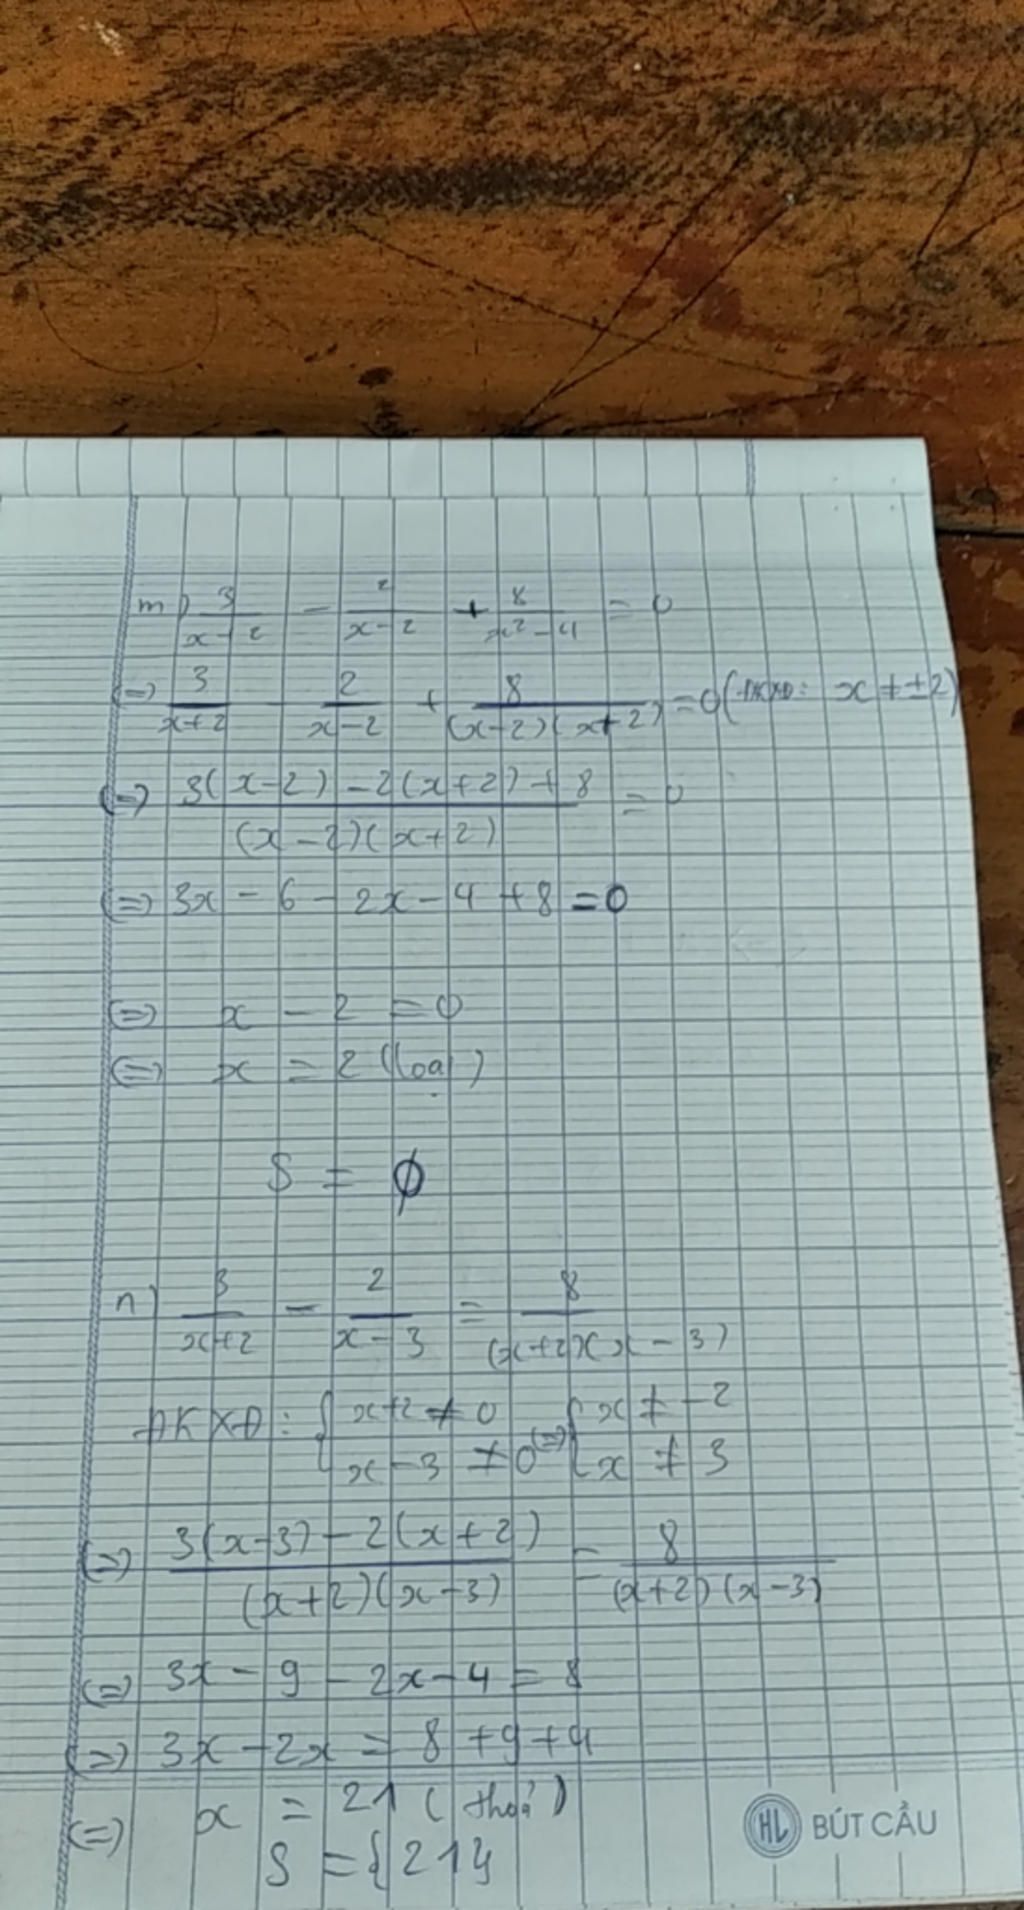 m) 3/(x+2) - 2/(x-2) + 8/(x²-4) = 0
(=) 3/(x+2) - 2/(x-2) + 8/((x-2)(x+2)) = 0 (ĐKXĐ: x ≠ ±2)
(=) (3(x-2) - 2(x+2) + 8)/((x-2)(x+2)) = 0
(=) 3x - 6 - 2x - 4 + 8 = 0
(=) x - 2 = 0
(=) x = 2 (loại)
S = ∅
n) 3/(x+2) - 2/(x-3) = 8/((x+2)(x-3))
ĐKXĐ: { x+2 ≠ 0 ; x-3 ≠ 0 (=) { x ≠ -2 ; x ≠ 3
(=) (3(x-3) - 2(x+2))/((x+2)(x-3)) = 8/((x+2)(x-3))
(=) 3x - 9 - 2x - 4 = 8
(=) 3x - 2x = 8 + 9 + 4
(=) x = 21 (thoả)
S = {21}
HL BÚT CẦU